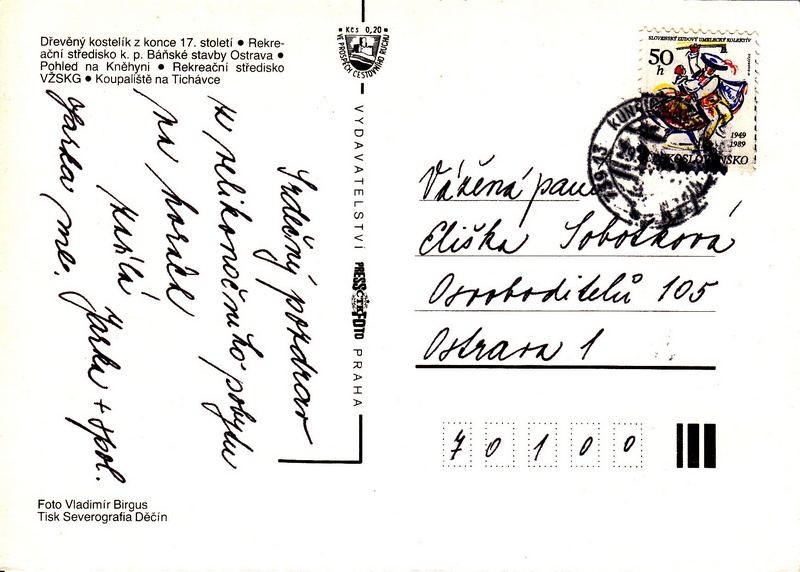 Dřevěný kostelík z konce 17. století ● Rekre-
ační středisko k. p. Báňské stavby Ostrava ●
Pohled na Kněhyni ● Rekreační středisko
VŽSKG ● Koupaliště na Tichávce
Kčs 0,20
VE PROSPĚCH CESTOVNÍHO RUCHU
VYDAVATELSTVÍ PRESSFOTO PRAHA
ČTK
Srdečný pozdrav
z velikonočního pobytu
na horách
Jarka + spol.
SLOVENSKÝ ĽUDOVÝ UMELECKÝ KOLEKTÍV
50
h
1949
1989
ČESKOSLOVENSKO
739 13
Vážená paní
Eliška Sobotková
Osvoboditelů 105
Ostrava 1
7 0 1 0 0
Foto Vladimír Birgus
Tisk Severografia Děčín